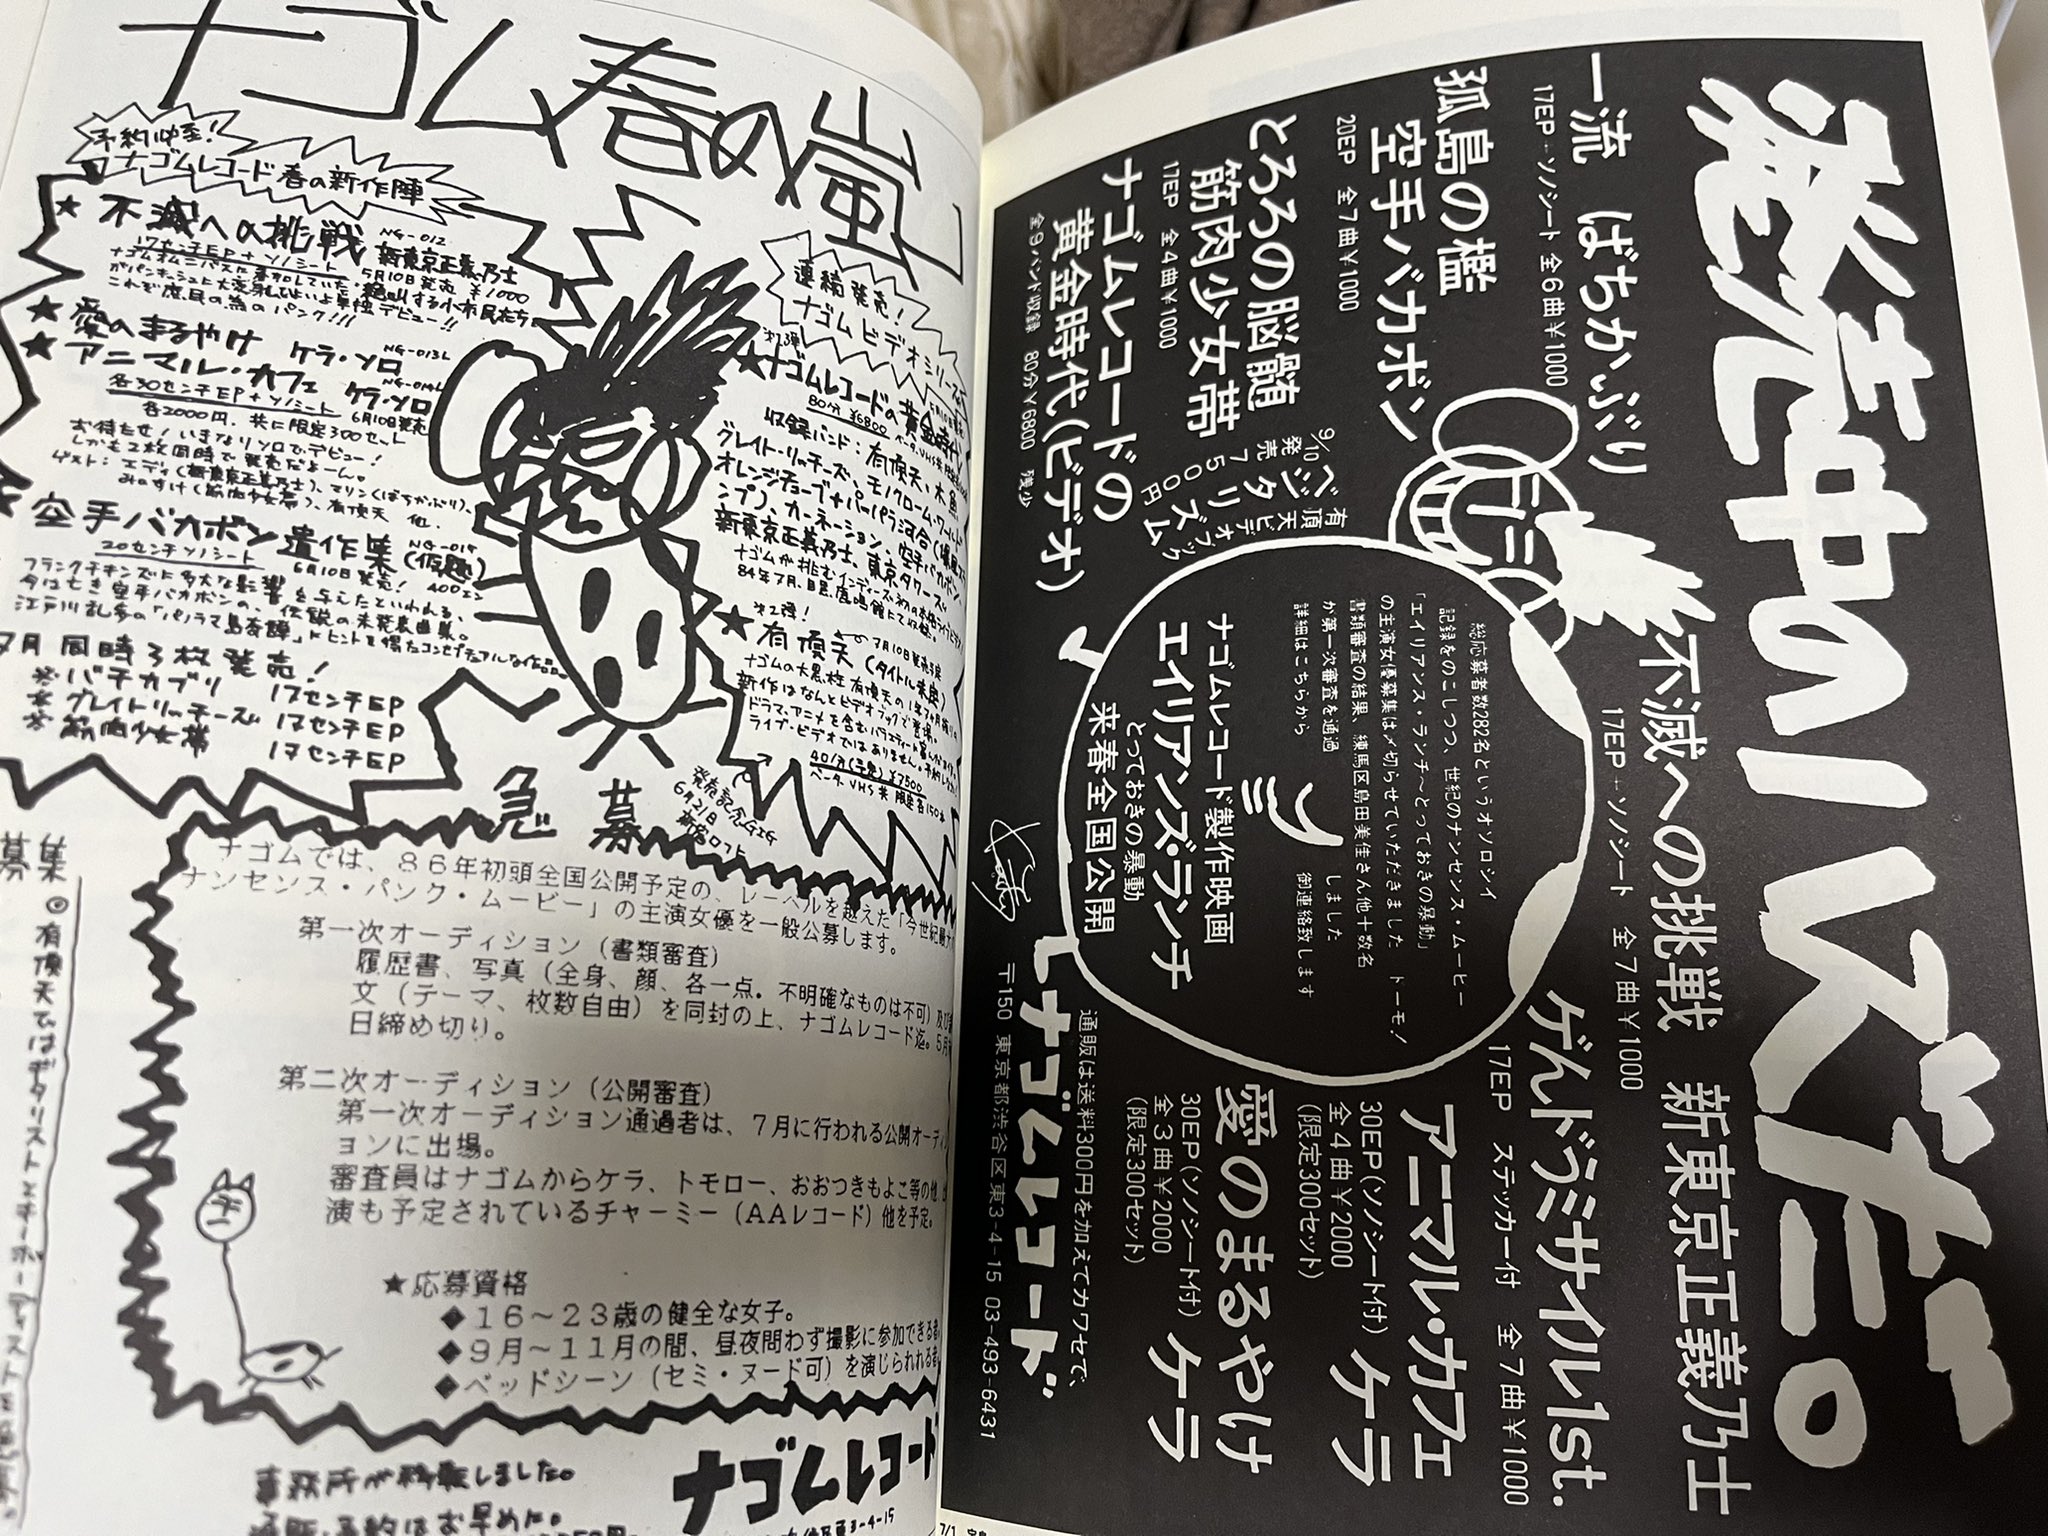 ナゴム春の嵐
予約必至!
ナゴムレコード春の新作陣
★不滅への挑戦 NG-012
17センチEP+ソノシート 新東京正義乃士
5月10日発売 ¥1000
これぞ庶民の為のパンク!!!
★愛のまるやけ ケラ・ソロ NG-013L
★アニマル・カフェ ケラ・ソロ NG-014L
各30センチEP+ソノシート 6月10日発売
各2000円、共に限定300セット
お待たせ!いきなりソロでデビュー!
しかも2枚同時で発売だよーん。
ゲスト:エディ(新東京正義乃士)、マリン(ばちかぶり)、
みのすけ(筋肉少女帯)、有頂天 他.
★空手バカボン遺作集(仮題)
20センチソノシート
6月10日発売! 400エン
フランクチキンズに多大な影響を与えたといわれる、
今は亡き空手バカボンの、伝説の未発表曲集。
江戸川乱歩の「パノラマ島奇譚」
7月同時3枚発売!
※バチカブリ 17センチEP
※グレイトリッチーズ 17センチEP
※筋肉少女帯 17センチEP
連続発売!
ナゴムビデオシリーズ
★ナゴムレコードの黄金時代
80分 ¥6800
収録バンド:有頂天、木魚、
グレイト・リッチーズ、モノクローム・ワールド
カーネーション、空手バカボン、
新東京正義乃士、東京タワーズ
84年7月、目黒鹿鳴館にて収録。
第2弾!
★有頂天(タイトル未定)
7月10日発売予定
ナゴムの大黒柱 有頂天の
新作はなんとビデオブックで登場。
ライブ・ビデオではありません。
40分(予定)¥7500
ベータ、VHS共 限定各150本
発売記念GIG
6月21日
新宿ロフト
急募
ナゴムでは、86年初頭全国公開予定の、レーベルを越えた「今世紀最
ナンセンス・パンク・ムービー」の主演女優を一般公募します。
第一次オーディション(書類審査)
履歴書、写真(全身、顔、各一点.不明確なものは不可)及び
文(テーマ、枚数自由)を同封の上、ナゴムレコード迄。5月
日締め切り。
第二次オーディション(公開審査)
第一次オーディション通過者は、7月に行われる公開オーディ
ョンに出場。
審査員はナゴムからケラ、トモロー、おおつきもよこ等の他、
演も予定されているチャーミー(AAレコード)他を予定。
★応募資格
◆16〜23歳の健全な女子。
◆9月〜11月の間、昼夜問わず撮影に参加できる者
◆ベッドシーン(セミ・ヌード可)を演じられる者
ナゴムレコード
事務所が移転しました。
3-4-15
募集
◎有頂天ではギタリストとキーボーディストを
発売中のハズだ。
一流 ばちかぶり
17EP+ソノシート 全6曲¥1000
孤島の檻
空手バカボン
20EP 全7曲¥1000
とろろの脳髄
筋肉少女帯
17EP 全4曲¥1000
ナゴムレコードの
黄金時代(ビデオ)
全9バンド収録 80分¥6800 残少
9/10発売
有頂天ビデオブック
ベジタリズム
7500円
不滅への挑戦 新東京正義乃士
17EP+ソノシート 全7曲¥1000
げんドラミサイル1st.
17EP ステッカー付 全7曲¥1000
アニマル・カフェ ケラ
30EP(ソノシート付)
全4曲¥2000
(限定300セット)
愛のまるやけ ケラ
30EP(ソノシート付)
全3曲¥2000
(限定300セット)
総応募者数282名というオソロシイ
記録をのこしつつ、世紀のナンセンス・ムービー
「エイリアンズ・ランチ〜とっておきの暴動」
の主演女優募集は〆切らせていただきました ドーモ!
書類審査の結果、練馬区島田美佳さん他十数名
が第一次審査を通過しました
詳細はこちらから御連絡致します
ナゴムレコード製作映画
エイリアンズ・ランチ
とっておきの暴動
来春全国公開
通販は送料300円を加えてカワセで、
ナゴムレコード
〒150 東京都渋谷区東3-4-15 03-493-6431